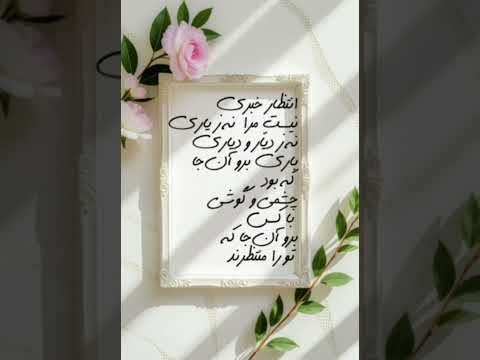 انتظار خبری
نیست مرا نه ز یاری
نه ز دیّار و دیاری
باری برو آن جا
که بود
چشمی و گوشی
با کس
برو آن جا که
تو را منتظرند